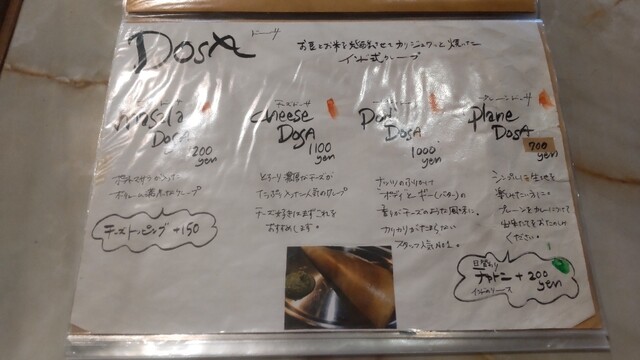 DOSA ドーサ
お豆とお米を発酵させてカリジュワッと焼いた
インド式クレープ
Masala
DOSA
200
yen
ポテトマサラ入った
ボリューム満点なクレープ
チーズトッピング +150
チーズドーサ
Cheese
DOSA
1100
yen
とろーり濃厚なチーズが
たっぷり入った人気のクレープ
チーズ好きはまずこれを
おすすめします。
DOSA
1000
yen
ナッツのふりかけ
ポディとギー(バター)の
香りがチーズのような風味に。
カリカリがたまらない
スタッフ人気No1。
プレーンドーサ
Plane
DOSA
700
yen
シンプルに生地を
楽しみたい方に。
プレーンをカレーにつけて
ください。
日替わり
チャトニ +200
yen
インドのソース